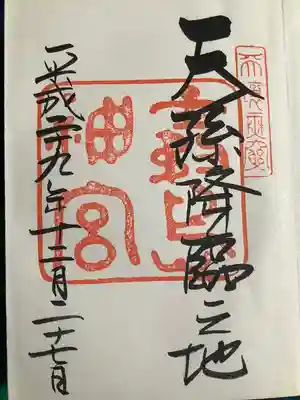 天孫降臨之地
霧島
神宮
平成二十九年十二月二十七日